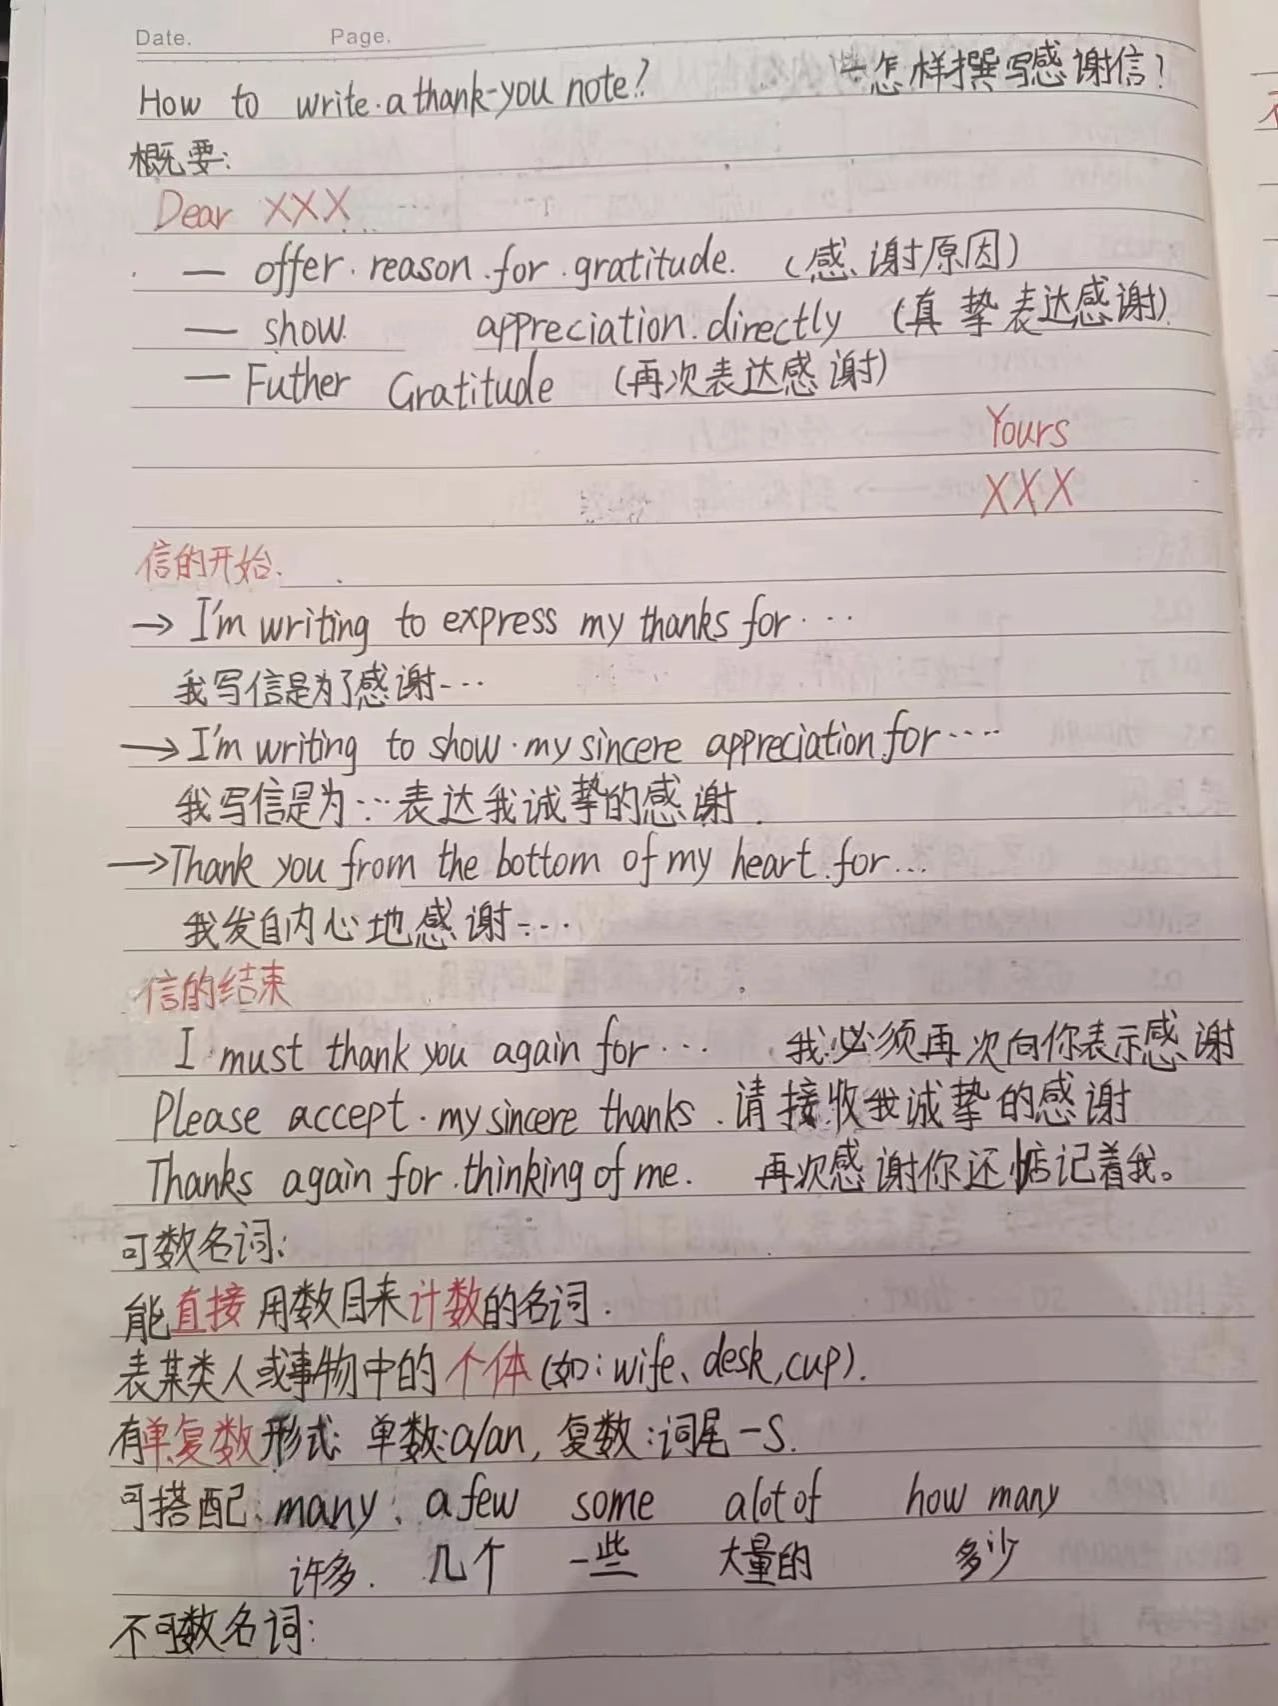 Date. Page.
How to write a thank-you note? 怎样撰写感谢信?
概要:
Dear XXX
— offer reason for gratitude. (感谢原因)
— show appreciation directly (真挚表达感谢)
— Futher Gratitude (再次表达感谢)
Yours
XXX
信的开始.
→ I'm writing to express my thanks for ...
我写信是为了感谢...
→ I'm writing to show my sincere appreciation for ....
我写信是为...表达我诚挚的感谢.
→ Thank you from the bottom of my heart for...
我发自内心地感谢....
信的结束
I must thank you again for ... 我必须再次向你表示感谢
Please accept my sincere thanks. 请接收我诚挚的感谢
Thanks again for thinking of me. 再次感谢你还惦记着我。
可数名词:
能直接用数目来计数的名词.
表某类人或事物中的个体(如:wife、desk,cup).
有单复数形式: 单数:a/an, 复数:词尾-s.
可搭配: many, a few some a lot of how many
许多. 几个 一些 大量的 多少
不可数名词: